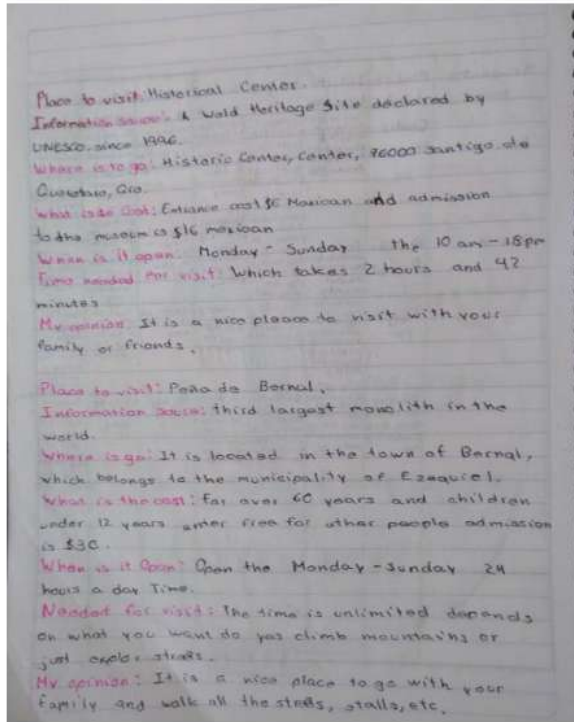 Place to visit: Historical Center.
Information souse: A World Heritage Site declared by
UNESCO. since 1996.
Where is to go: Historic Center, Center, 76000 Santigo de
Queretaro, Qro.
What is the Cost: Entrance cost $6 Mexican and admission
to the museum is $16 mexican
When is it open: Monday - Sunday the 10 am - 18 pm
Time needed for visit: Which takes 2 hours and 42
minutes
My opinion: It is a nice pleace to visit with your
family or friends.
Place to visit: Peña de Bernal.
Information souse: third largest monolith in the
world.
Where is go: It is located in the town of Bernal,
which belongs to the municipality of Ezequiel.
What is the cost: For over 60 years and children
under 12 years enter free for other people admission
is $30.
When is it Open: Open the Monday - Sunday 24
hours a day Time.
Needed for visit: The time is unlimited depends
on what you want do climb mountains or
just explor streets.
My opinion: It is a nice place to go with your
family and walk all the streets, stalls, etc.